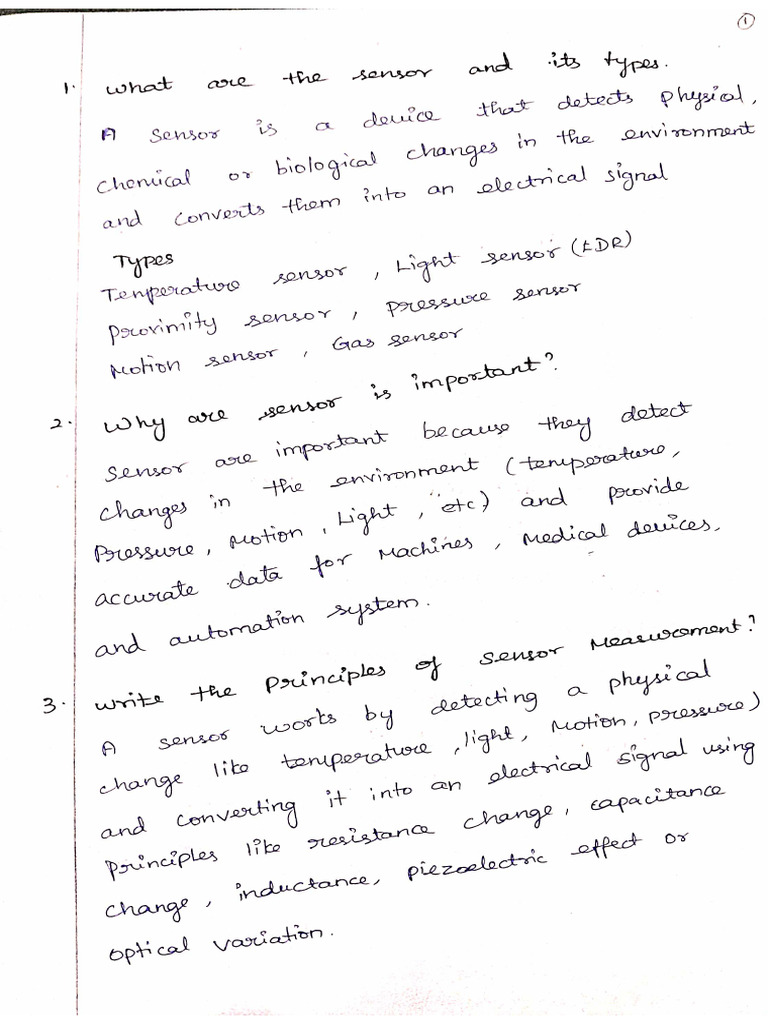 1
1. What are the sensor and its types.
A sensor is a device that detects physial,
chemical or biological changes in the environment
and converts them into an electrical signal
Types
Temperature sensor, Light sensor (LDR)
Proximity sensor, Pressure sensor
Motion sensor, Gas sensor
2. Why are sensor is important?
Sensor are important because they detect
changes in the environment (temperature,
Pressure, Motion, Light, etc) and provide
accurate data for Machines, Medical devices,
and automation system.
3. Write the Principles of sensor Measurement?
A sensor works by detecting a physical
change like temperature, light, Motion, pressure)
and converting it into an electrical signal using
Principles like resistance change, capacitance
change, inductance, piezoelectric effect or
optical variation.